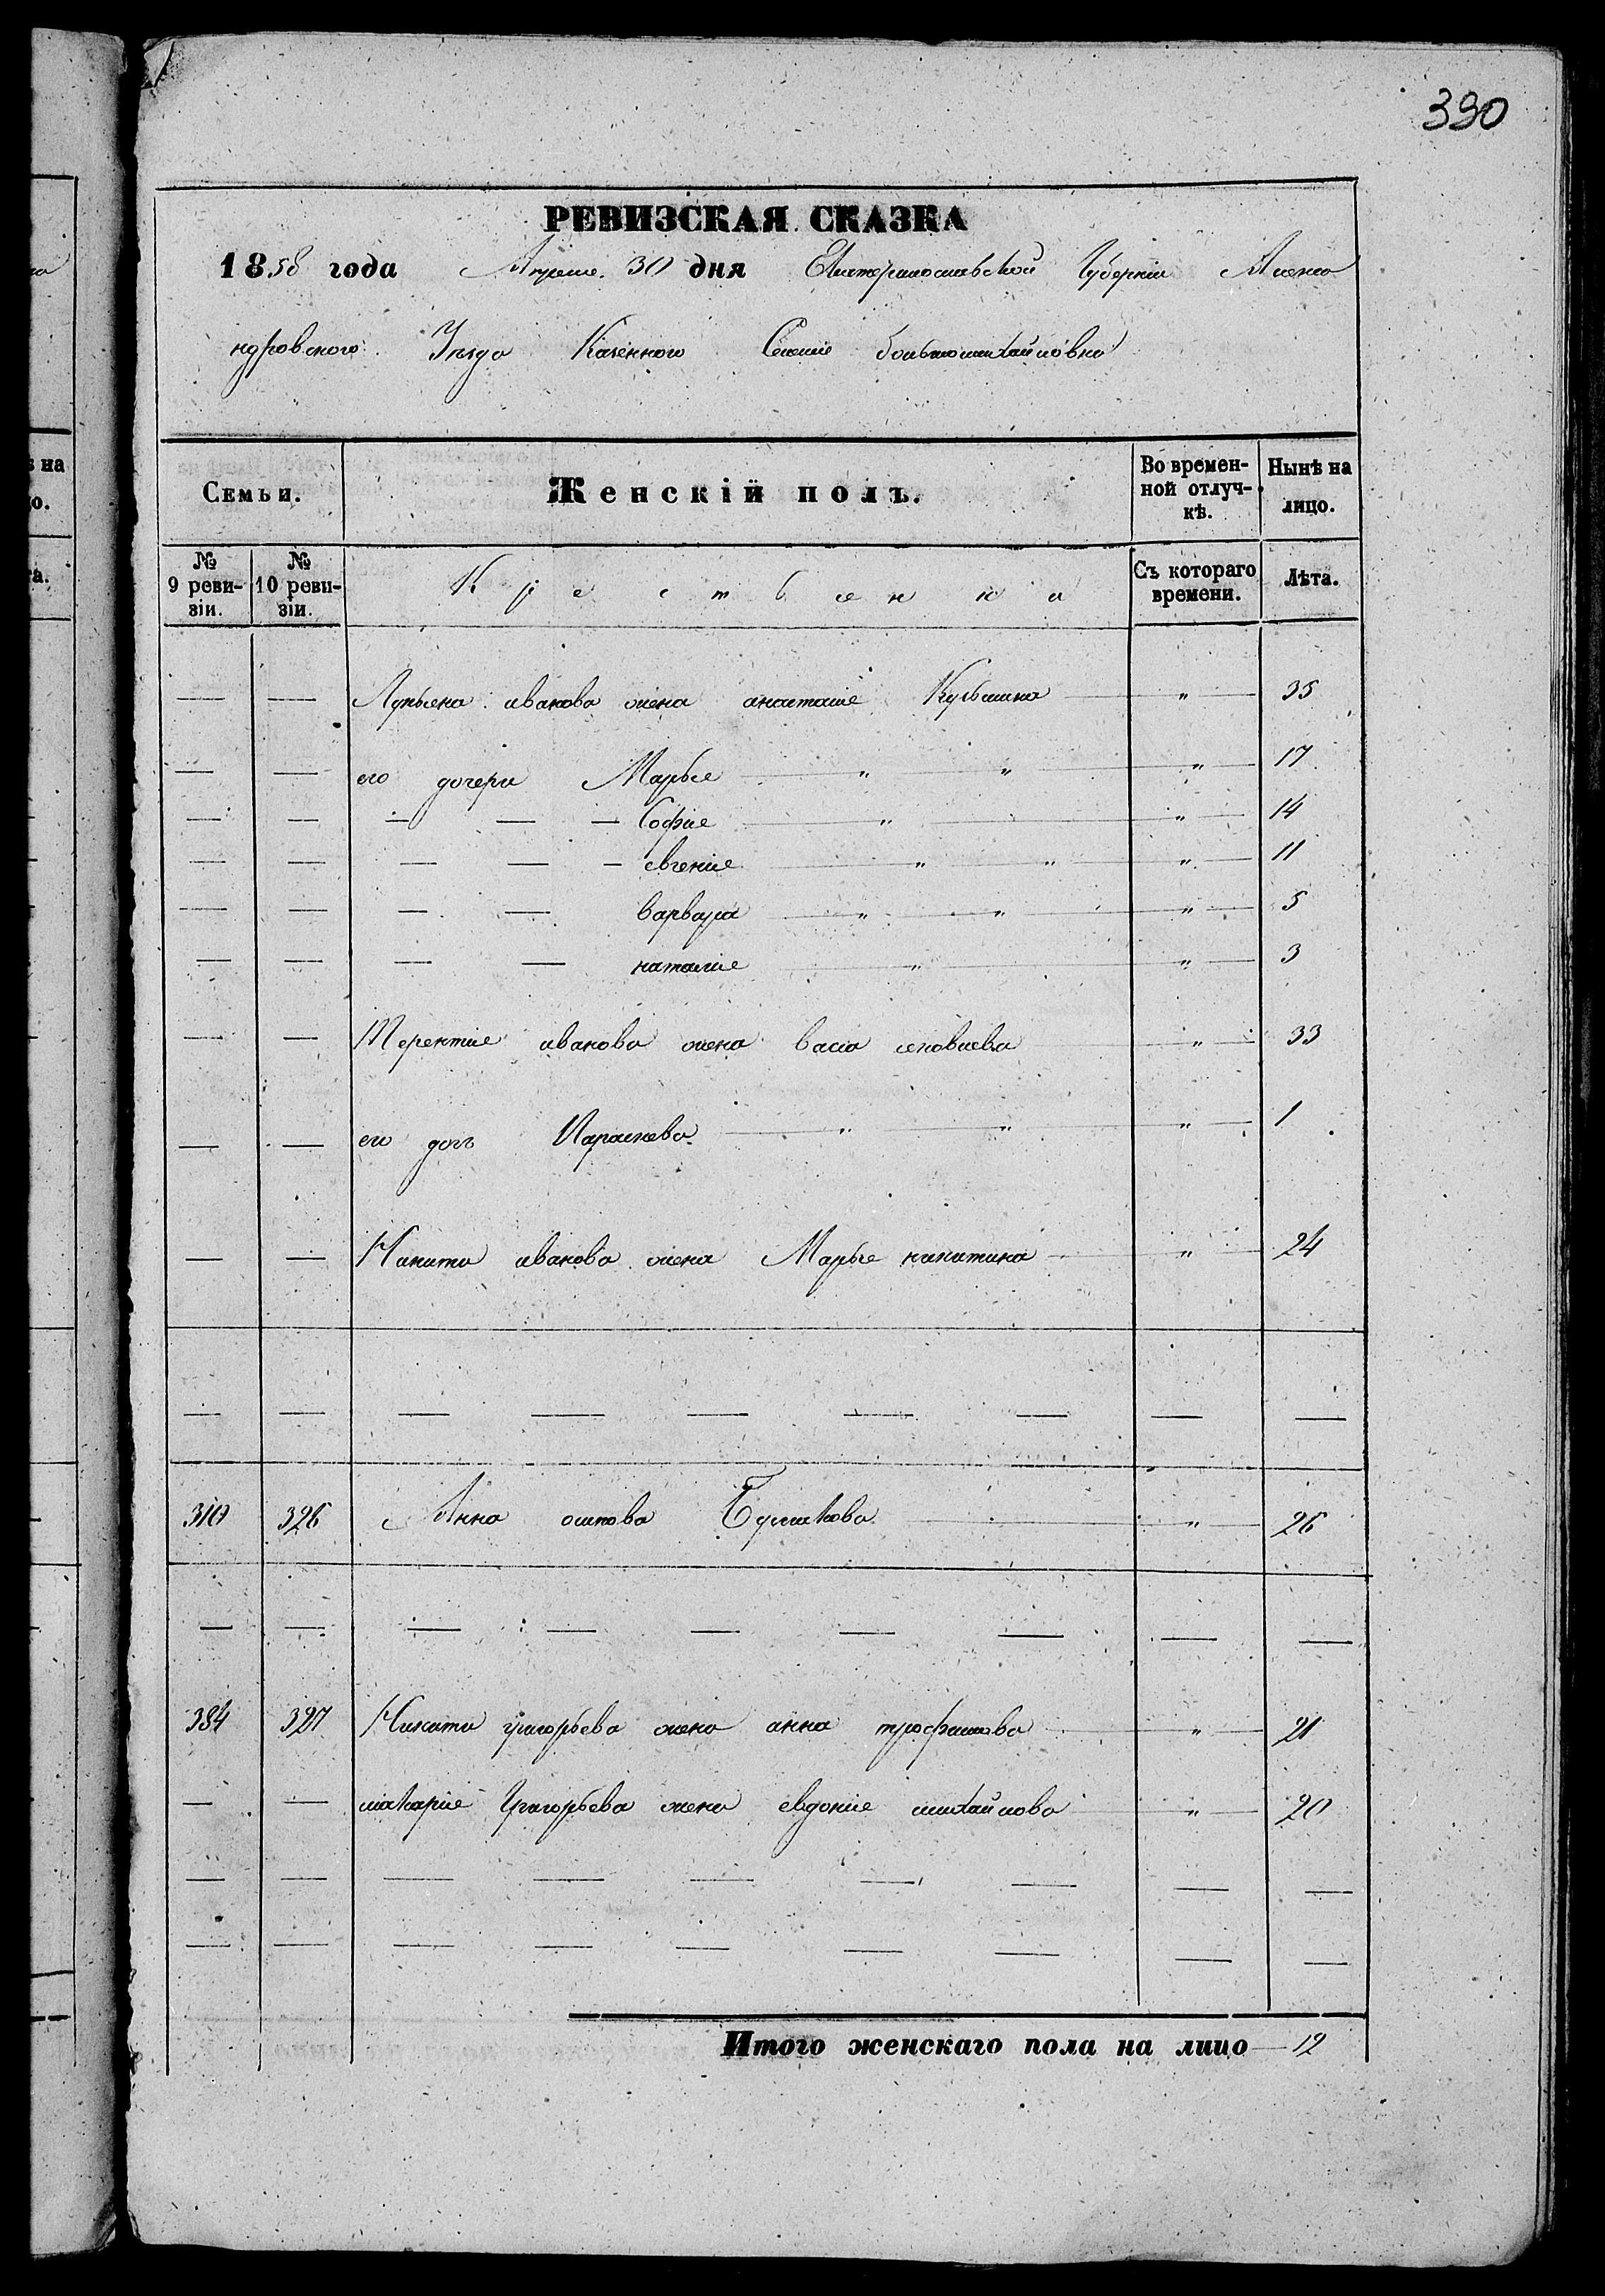 390
РЕВИЗСКАЯ СКАЗКА
1858 года Апреля 30 дня Екатеринославской Губерніи Алекса
ндровского Уезда Казенного Селеніе большомихайловки
Семьи.
Женскій полъ.
Во времен-
ной отлуч-
кѣ.
Нынѣ на
лицо.
№
9 реви-
зіи.
№
10 реви-
зіи.
Съ котораго
времени.
Лѣта.
— — Лукьена иванова жена анастасіе — " — 35
— — его дочери Марье — " — " — " — 17
— — — — — Софіе — " — " — 14
— — — — — евгеніе — " — " — " — 11
— — — — варвара — " — " — " — 5
— — — — наталіе — " — " — 3
— — Терентіе иванова жена васса — " — 33
— — его дочь Параскева — " — " — " — 1
— — Никити иванова жена Марье никитина — " — 24
— — — — — — — — —
310 326 Анна — " — 26
— — — — — — — — —
384 327 Никити григорьева жена анна трофимова — " — 21
— — макаріе Григорьева жена евдокіе михайлова " — 20
— — — — — — — — —
— — — — — — — — —
Итого женскаго пола на лицо — 12